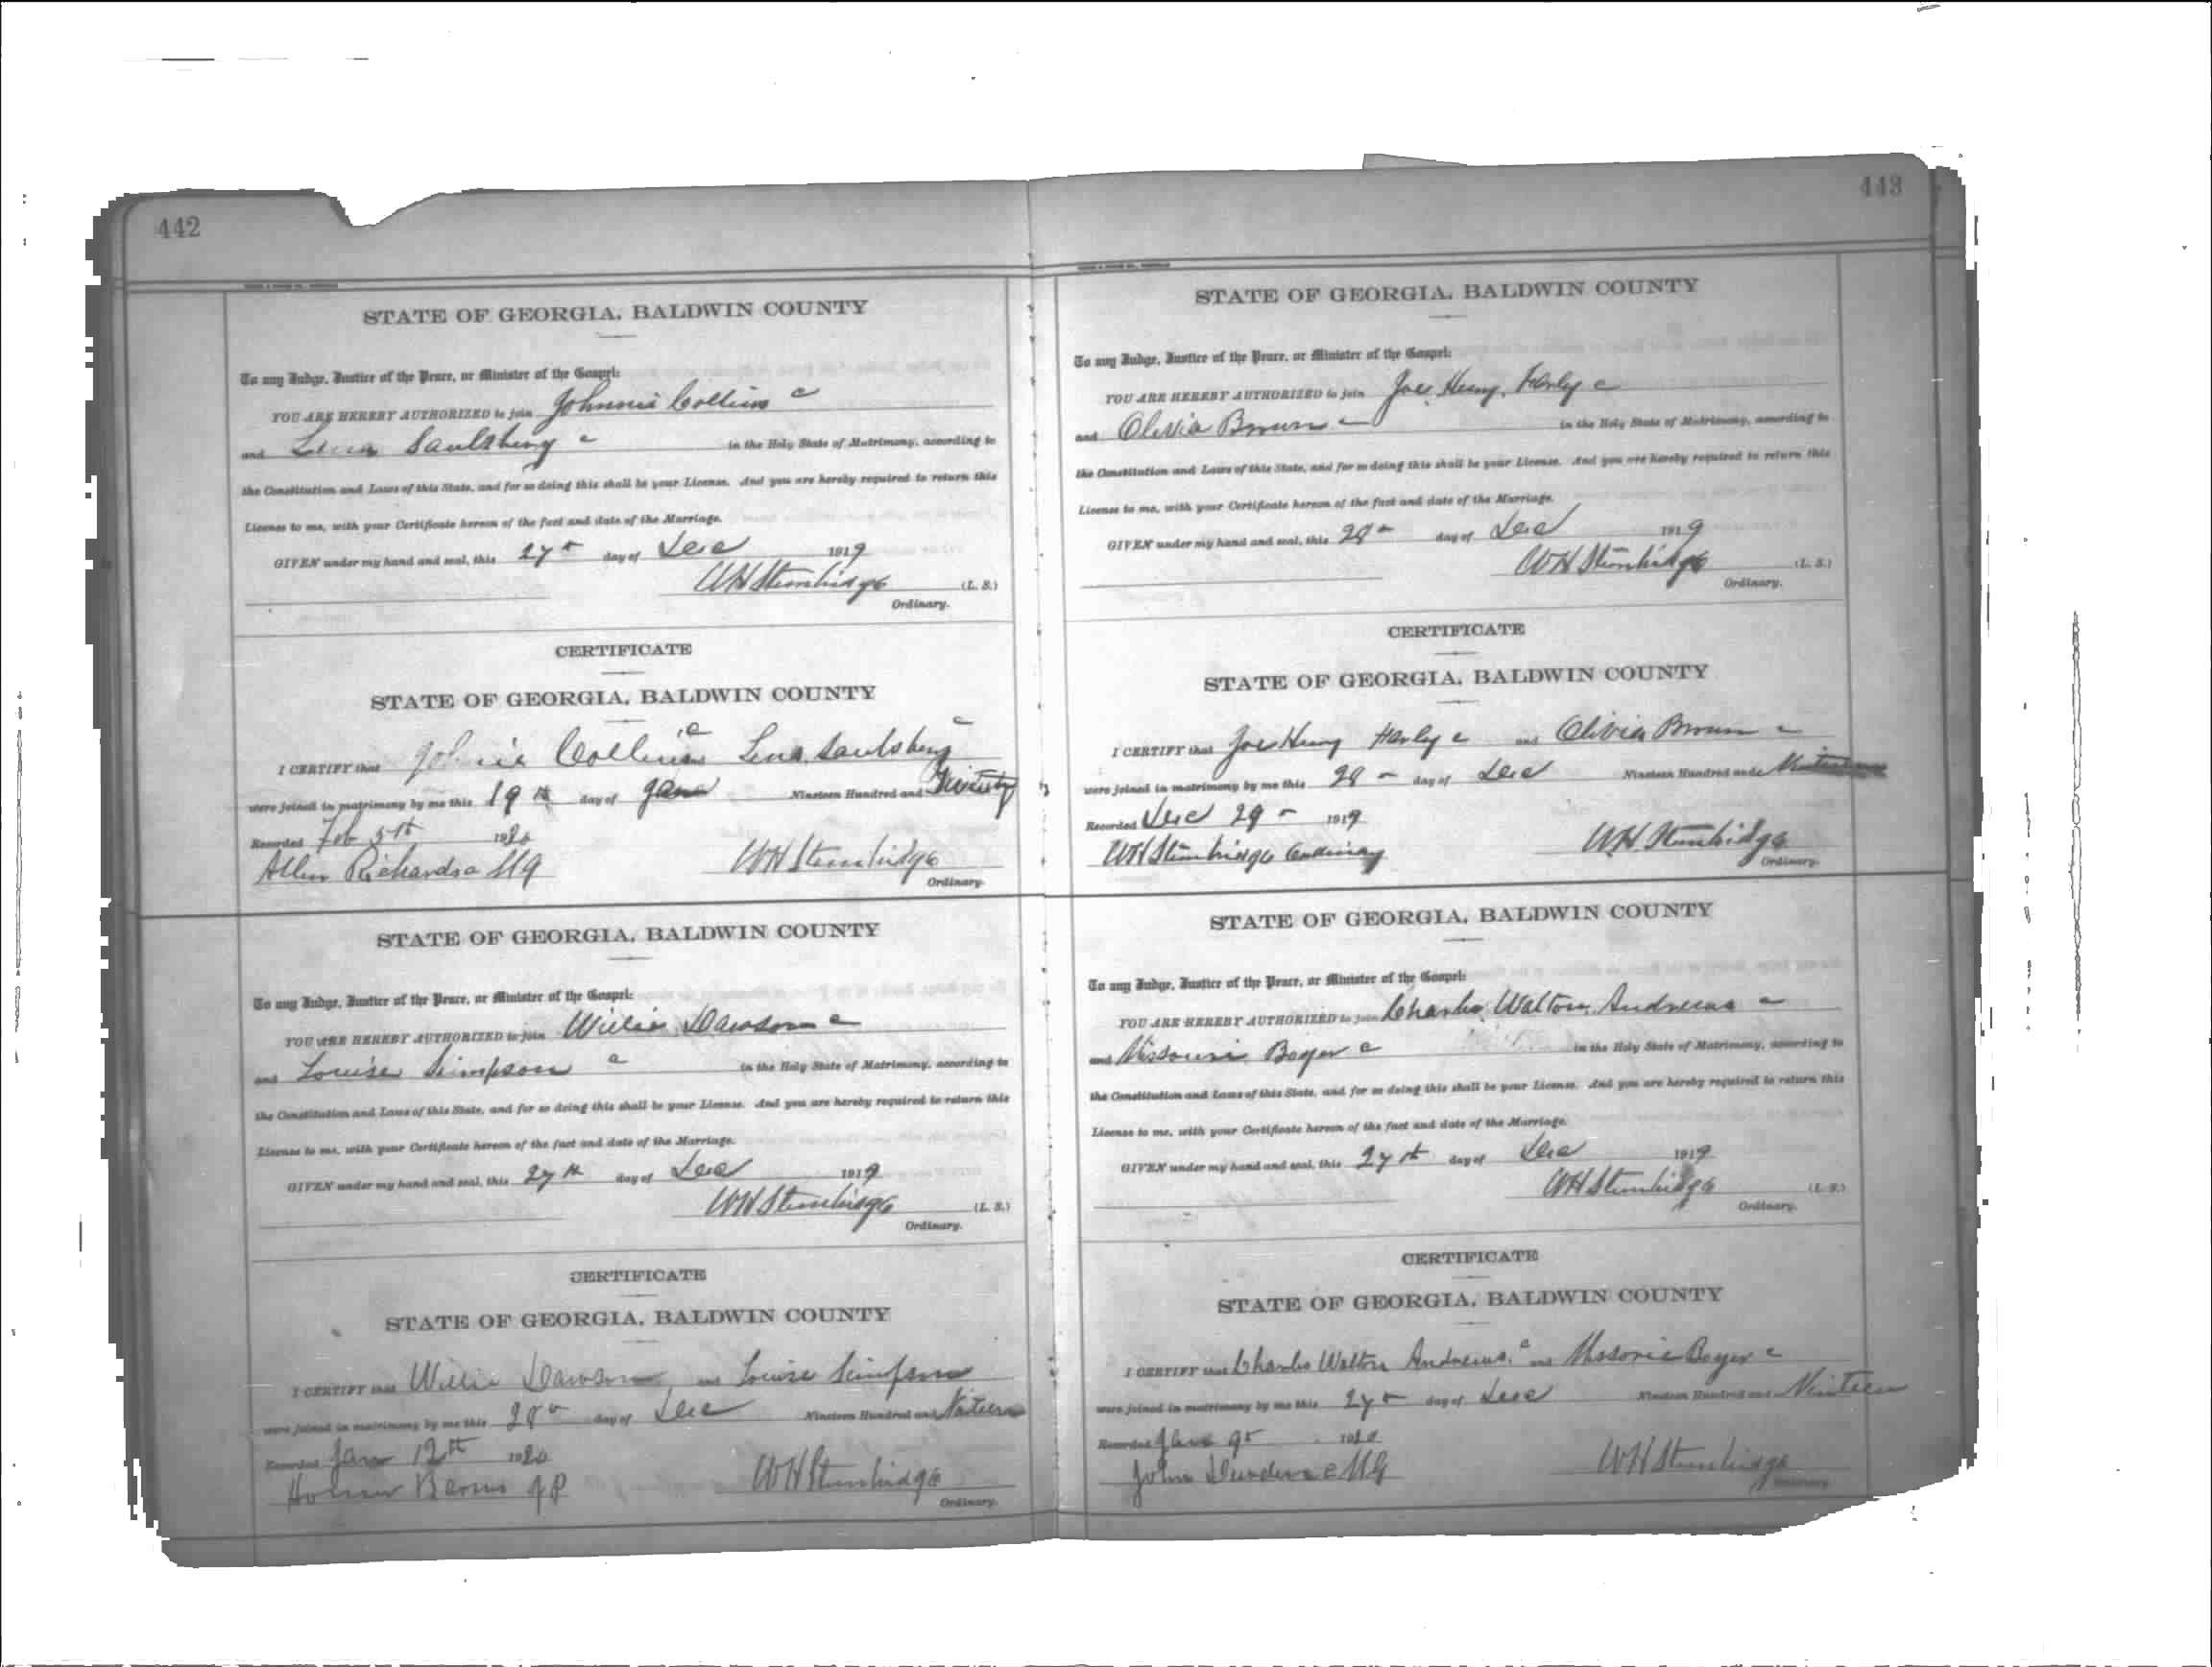 442
STATE OF GEORGIA, BALDWIN COUNTY
To any Judge, Justice of the Peace, or Minister of the Gospel:
YOU ARE HEREBY AUTHORIZED to join Johnnie Collins c
and Lena Saulsbury c in the Holy State of Matrimony, according to
the Constitution and Laws of this State, and for so doing this shall be your License. And you are hereby required to return this
License to me, with your Certificate hereon of the fact and date of the Marriage.
GIVEN under my hand and seal, this 27th day of Dec 1919
WH Stembridge (L. S.)
Ordinary.
CERTIFICATE
STATE OF GEORGIA, BALDWIN COUNTY
I CERTIFY that Johnie Collins c Lena Saulsbury c
were joined in matrimony by me this 19th day of Jan Nineteen Hundred and Twenty
Recorded Feb 5th 1920
Allen Richardson MG WH Stembridge
Ordinary.
STATE OF GEORGIA, BALDWIN COUNTY
To any Judge, Justice of the Peace, or Minister of the Gospel:
YOU ARE HEREBY AUTHORIZED to join Willie Dawson c
and Louise Simpson c in the Holy State of Matrimony, according to
the Constitution and Laws of this State, and for so doing this shall be your License. And you are hereby required to return this
License to me, with your Certificate hereon of the fact and date of the Marriage.
GIVEN under my hand and seal, this 27th day of Dec 1919
WH Stembridge (L. S.)
Ordinary.
CERTIFICATE
STATE OF GEORGIA, BALDWIN COUNTY
I CERTIFY that Willie Dawson and Louise Simpson
were joined in matrimony by me this 28th day of Dec Nineteen Hundred and Nineteen
Recorded Jan 12th 1920
Barnes JP WH Stembridge
Ordinary.
443
STATE OF GEORGIA, BALDWIN COUNTY
To any Judge, Justice of the Peace, or Minister of the Gospel:
YOU ARE HEREBY AUTHORIZED to join Joe Henry c
and Olivia Brown c in the Holy State of Matrimony, according to
the Constitution and Laws of this State, and for so doing this shall be your License. And you are hereby required to return this
License to me, with your Certificate hereon of the fact and date of the Marriage.
GIVEN under my hand and seal, this day of Dec 1919
WH Stembridge (L. S.)
Ordinary.
CERTIFICATE
STATE OF GEORGIA, BALDWIN COUNTY
I CERTIFY that Joe Henry c and Olivia Brown c
were joined in matrimony by me this day of Dec Nineteen Hundred and
Recorded Dec 29 1919
WH Stembridge Ordinary WH Stembridge
Ordinary.
STATE OF GEORGIA, BALDWIN COUNTY
To any Judge, Justice of the Peace, or Minister of the Gospel:
YOU ARE HEREBY AUTHORIZED to join Charles Walton Andrews c
and Missouri Boyer c in the Holy State of Matrimony, according to
the Constitution and Laws of this State, and for so doing this shall be your License. And you are hereby required to return this
License to me, with your Certificate hereon of the fact and date of the Marriage.
GIVEN under my hand and seal, this 27th day of Dec 1919
WH Stembridge (L. S.)
Ordinary.
CERTIFICATE
STATE OF GEORGIA, BALDWIN COUNTY
I CERTIFY that Charles Walton Andrews c and Boyer c
were joined in matrimony by me this 27 day of Dec Nineteen Hundred and Nineteen
Recorded Jan 9 1920
John MG WH Stembridge
Ordinary.